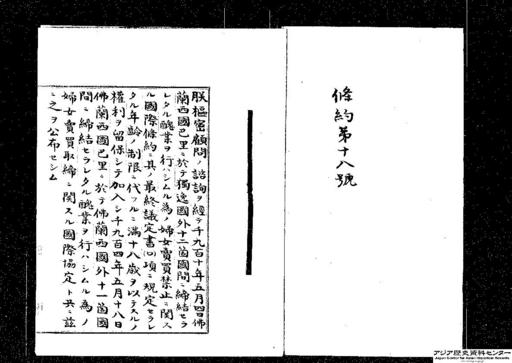 條約第十八號
朕樞密顧問ノ諮詢ヲ經テ千九百十年五月四日佛
蘭西國巴里ニ於テ獨逸國外十二箇國間ニ締結セラ
レタル醜業ヲ行ハシムル為ノ婦女賣買禁止ニ關ス
ル國際條約ニ其ノ最終議定書(ロ)項ニ規定セラレ
タル年齡ノ制限ニ代フルニ滿十八歳ヲ以テスルノ
權利ヲ留保シテ加入シ千九百四年五月十八日
佛蘭西國巴里ニ於テ佛蘭西國外十一箇國
間ニ締結セラレタル醜業ヲ行ハシムル為ノ
婦女賣買取締ニ關スル國際協定ト共ニ茲
ニ之ヲ公布セシム
アジア歴史資料センター
Japan Center for Asian Historical Records